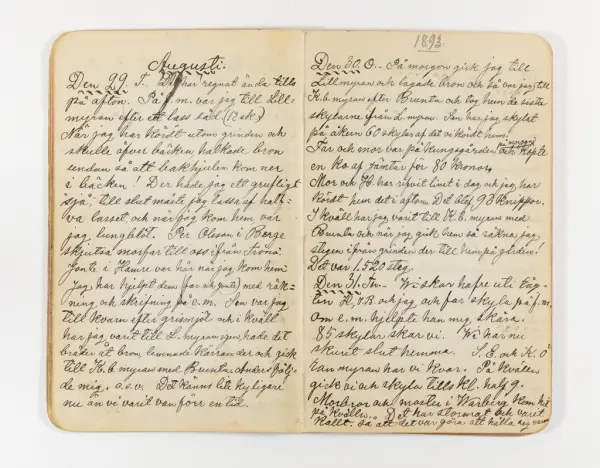 Augusti.
Den 29. T. Det har regnat ända tills
på afton. På f.m. var jag till Lill-
myran efter ett lass säd (12 sk.)
När jag har kördt utom grinden och
skulle öfver bäcken halkade bron
undan så att bakhjulen kom ner
i bäcken! Der hade jag ett grufligt
sjå, till slut måste jag lassa af half-
va lasset och när jag kom hem var
jag lungblöt. Per Olsson i Berge
skjutsa mosfar till oss ifrån
Jonte i Hamre var här när jag kom hem
Jag har hjelpt dem med räk-
ning och skrifning på e.m. Sen var jag
till kvarn efter grismjöl och i kväll
har jag varit till L. myran igen, hade det
bråder åt bron lemnade kärran der och gick
till K.b. myran med Brunta. Anders följ-
de mig. o.s.v. Det känns lite kyligare
nu än vi varit van förr en tid.
1893.
Den 30. O. På morgon gick jag till
Lillmyran och lagade bron och så var jag till
K.b. myran efter Brunta och tog hem de sista
skylarne från L. myran. Sen har jag skylat
på åkern 60 skylar af det vi kördt hem.
Far och mor var på Kungsgården på morgon och köpte
en ko af jämtar för 80 Kronor.
Mor och H. har ryfvit linet i dag och jag har
kördt hem det i afton. Det blef 93 knippor.
I kväll har jag varit till K.b. myran med
Brunta och när jag gick hem så räkna jag
stegen ifrån grinden der till hem på gården!
Det var 1.520 steg.
Den 31. To. Wi skar hafre uti Täg-
ten H. och B. och jag och far skyla på f.m.
Om e.m. hjelpte han mig skära.
85 skylar skar vi. Wi har nu
skurit slut hemma. S.E. och K. Ö
tan myran har vi kvar. På kvällen
gick vi och skyla tills kl. half 9.
Morbror och moster i Warberg kom hit
på kvällen. Det har stormat och varit
kallt, så att det var göra att hålla sig varm